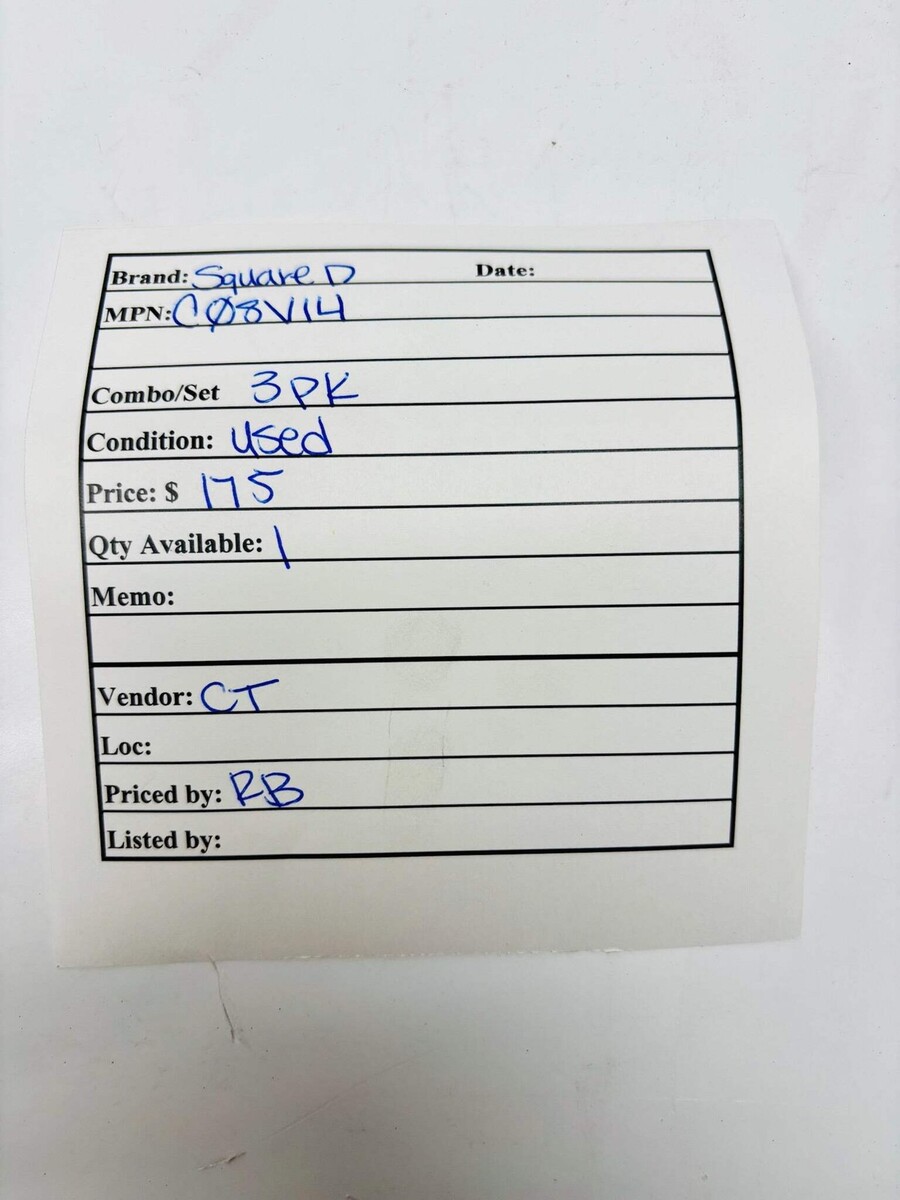 Brand: Square D Date:
MPN: CØ8V14
Combo/Set 3PK
Condition: Used
Price: $ 175
Qty Available: 1
Memo:
Vendor: CT
Loc:
Priced by: RB
Listed by: